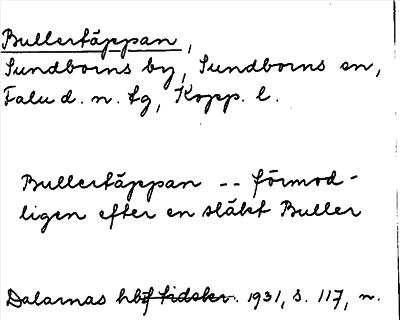 Bullertäppan,
Sundborns by, Sundborns sn,
Falu d. n. tg, Kopp. l.
Bullertäppan -- förmod-
ligen efter en släkt Buller
Dalarnas hbf tidskr. 1931, s. 117, n.